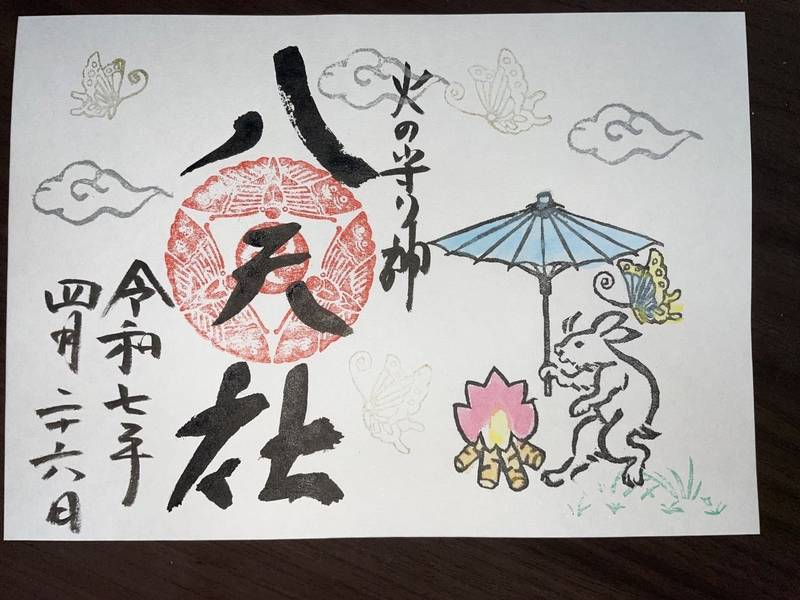 火の守り神
八天社
令和七年
四月二十六日